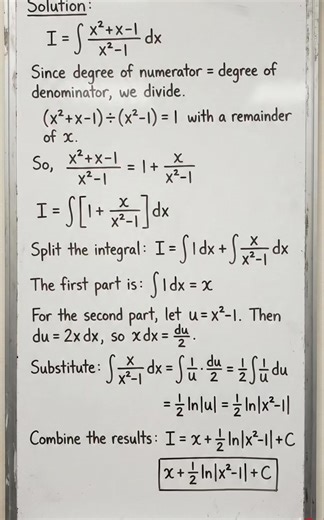 Solution:
I = ∫ (x²+x−1)/(x²−1) dx
Since degree of numerator = degree of
denominator, we divide.
(x²+x−1)÷(x²−1) = 1 with a remainder
of x.
So, (x²+x−1)/(x²−1) = 1 + x/(x²−1)
I = ∫[1 + x/(x²−1)]dx
Split the integral: I = ∫1 dx + ∫ x/(x²−1) dx
The first part is: ∫1 dx = x
For the second part, let u = x²−1. Then
du = 2x dx, so x dx = du/2.
Substitute: ∫ x/(x²−1) dx = ∫ 1/u · du/2 = 1/2 ∫ 1/u du
= 1/2 ln|u| = 1/2 ln|x²−1|
Combine the results: I = x + 1/2 ln|x²−1| + C
x + 1/2 ln|x²−1| + C